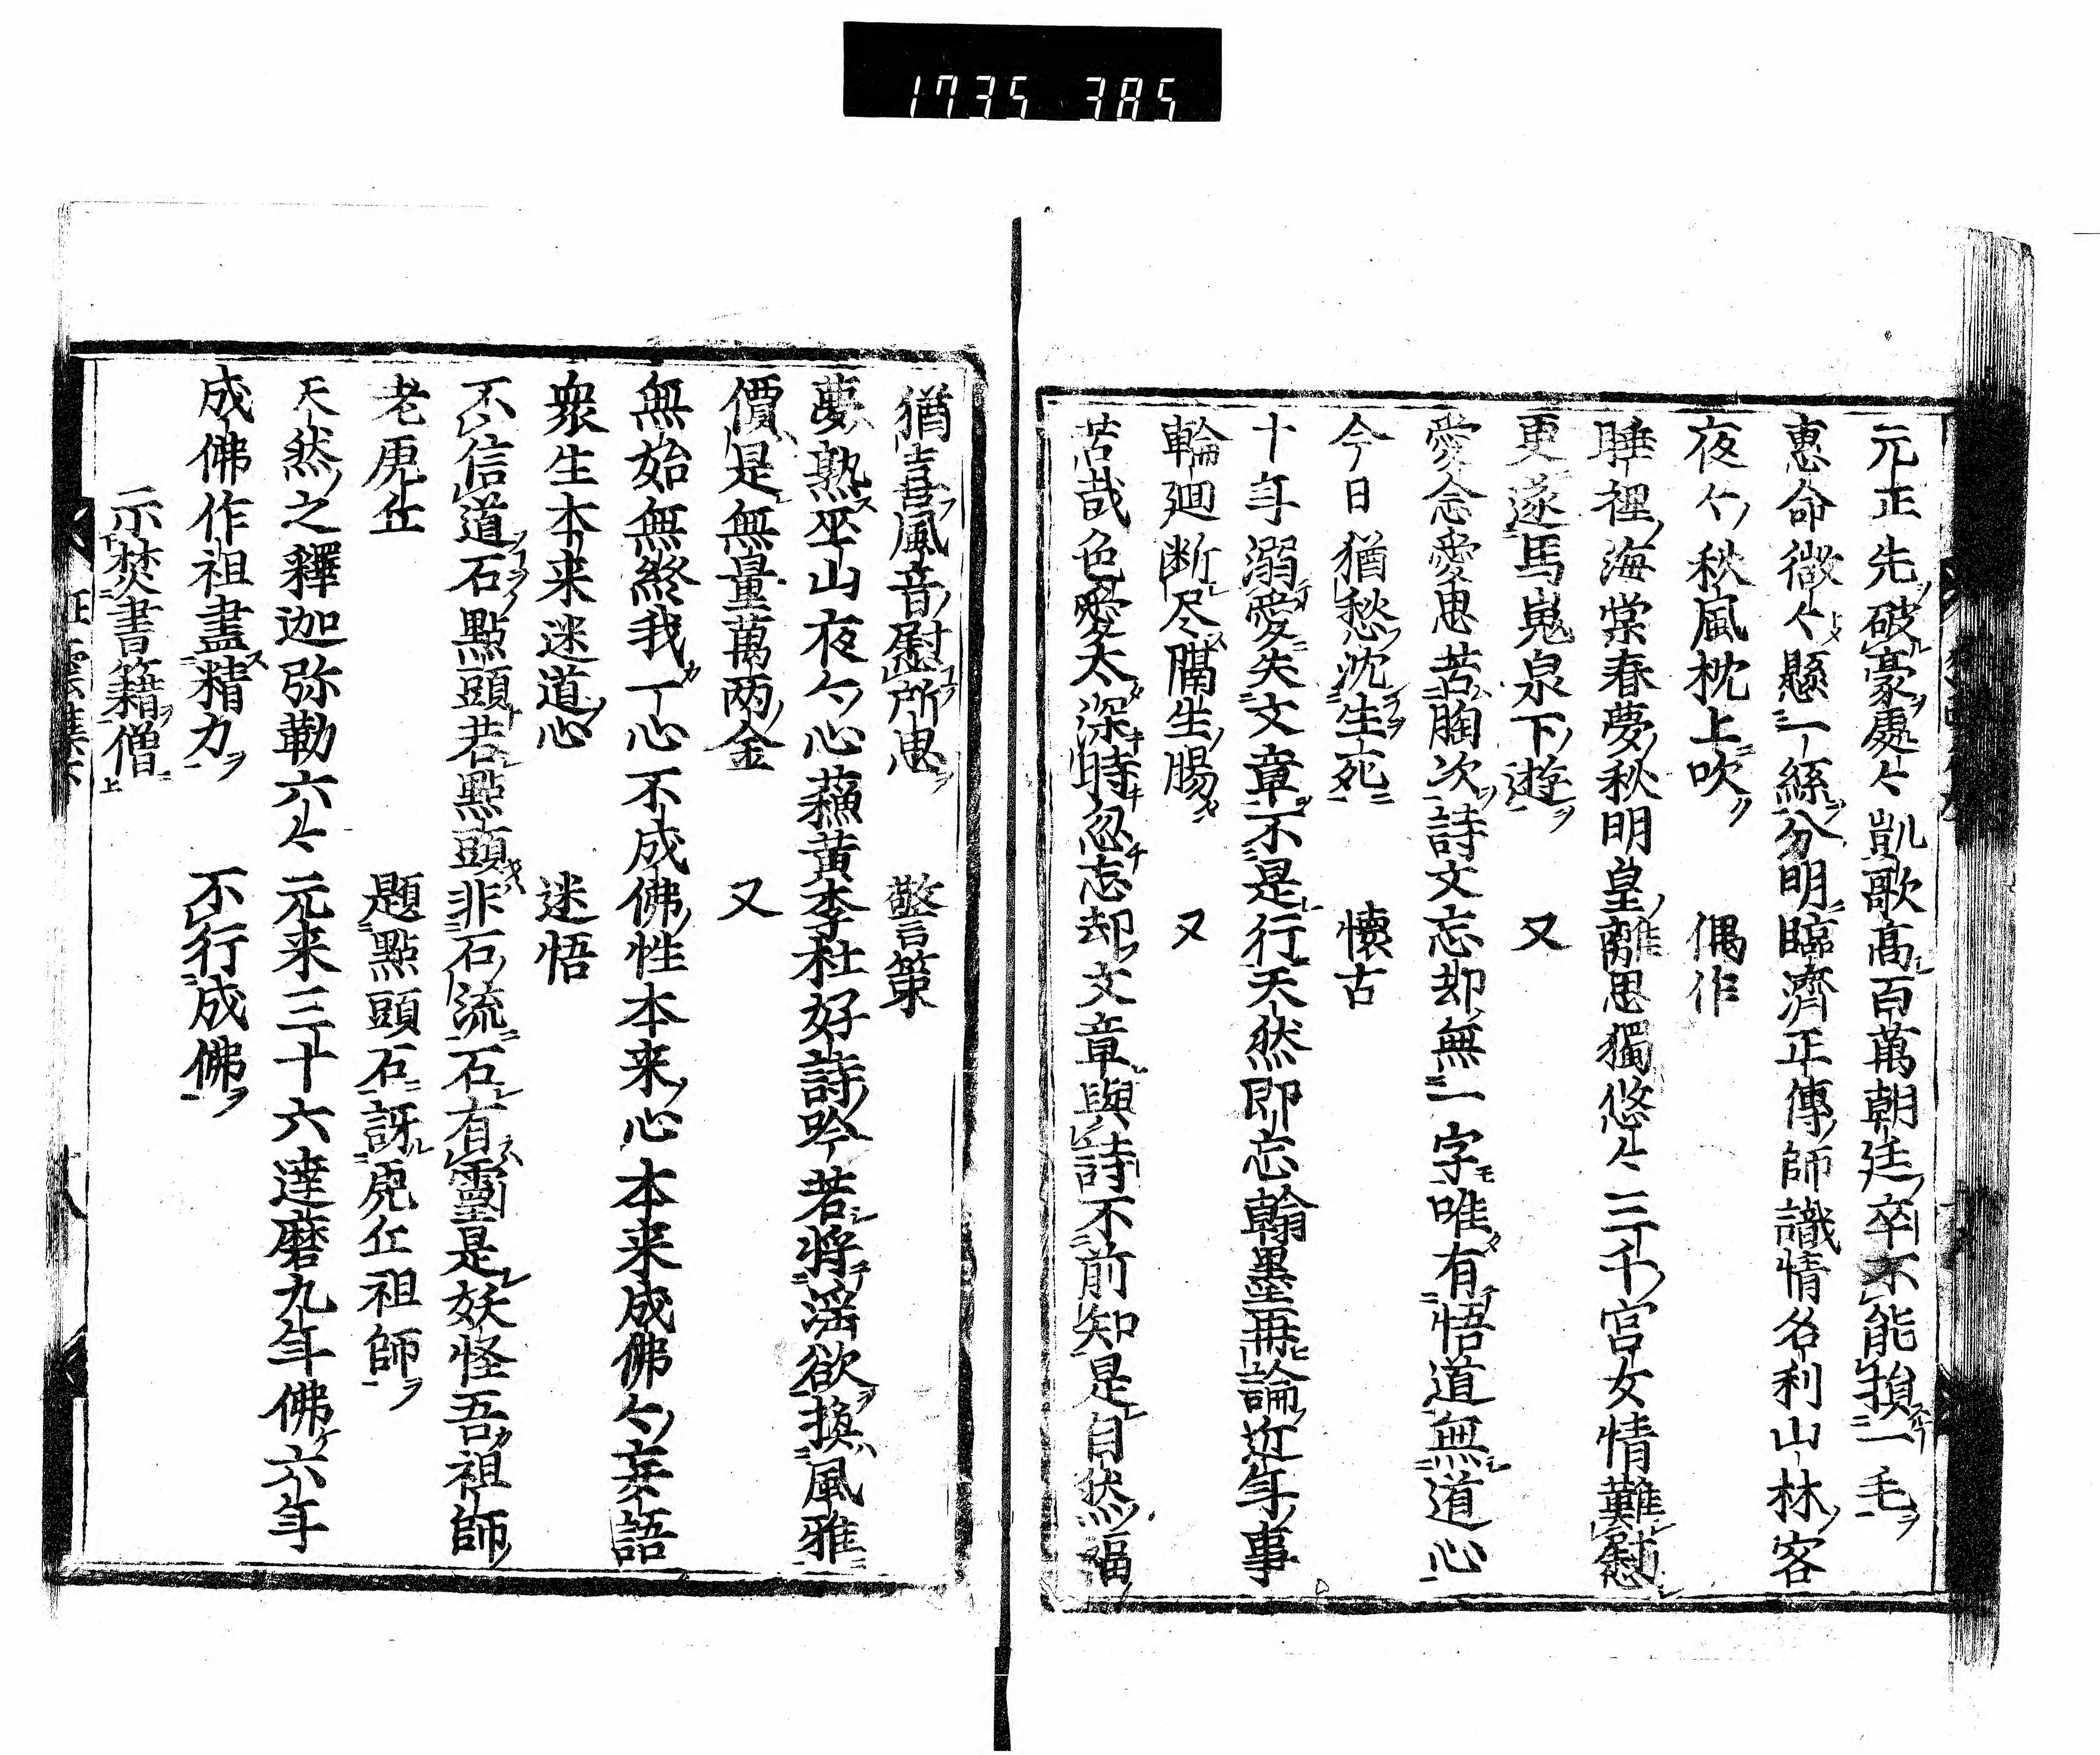 1735 385
元正先破豪處々凱歌高百萬朝廷卒不能損一毛
惠命微々懸一絲分明臨濟正傳師識情名利山林客
夜々秋風枕上吹　偶作
睡裡海棠春夢秋明皇離思獨悠々三千宮女情難慰
更逐馬嵬泉下遊　又
愛念愛思苦胸次詩文忘却無一字唯有悟道無道心
今日猶愁沈生死　懷古
十年溺愛失文章不是行天然即忘翰墨再論近年事
輪廻断尽隔生腸　又
苦哉色愛太深時忽忘却文章與詩不前知是自然福
猶喜風音慰所思　警策
夢熟巫山夜々心蘓黄李杜好詩吟若將淫欲換風雅
價是無量萬两金　又
無始無終我一心不成佛性本来心本来成佛々妄語
衆生本来迷道心　迷悟
不信道石點頭若點頭非石流石有靈是妖怪吾祖師
老虎丘　題點頭石訝虎丘祖師
天然之釋迦弥勒六々元来三十六達磨九年佛六年
成佛作祖盡精力　不行成佛
示焚書籍僧